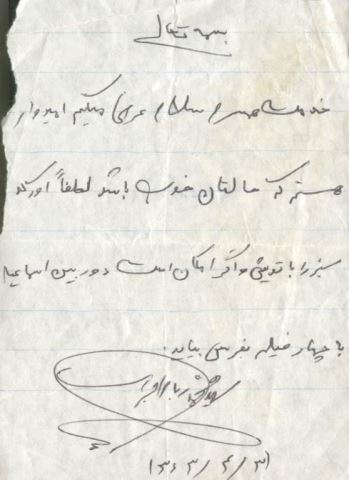 بسمه تعالی
خدمت همسرم سلام عرض میکنم امیدوار
هستم که حالتان خوب باشد لطفاً اورکت
سبز را با پوتین و اگر امکان است دوربین اسماعیل
با چهار فیلم بفرس بیاید.
۱۳۶۳/۴/۳۱